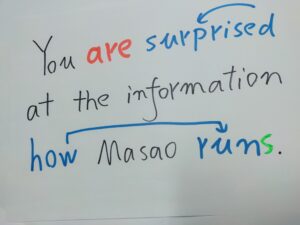 You are surprised
at the information
how Masao runs.